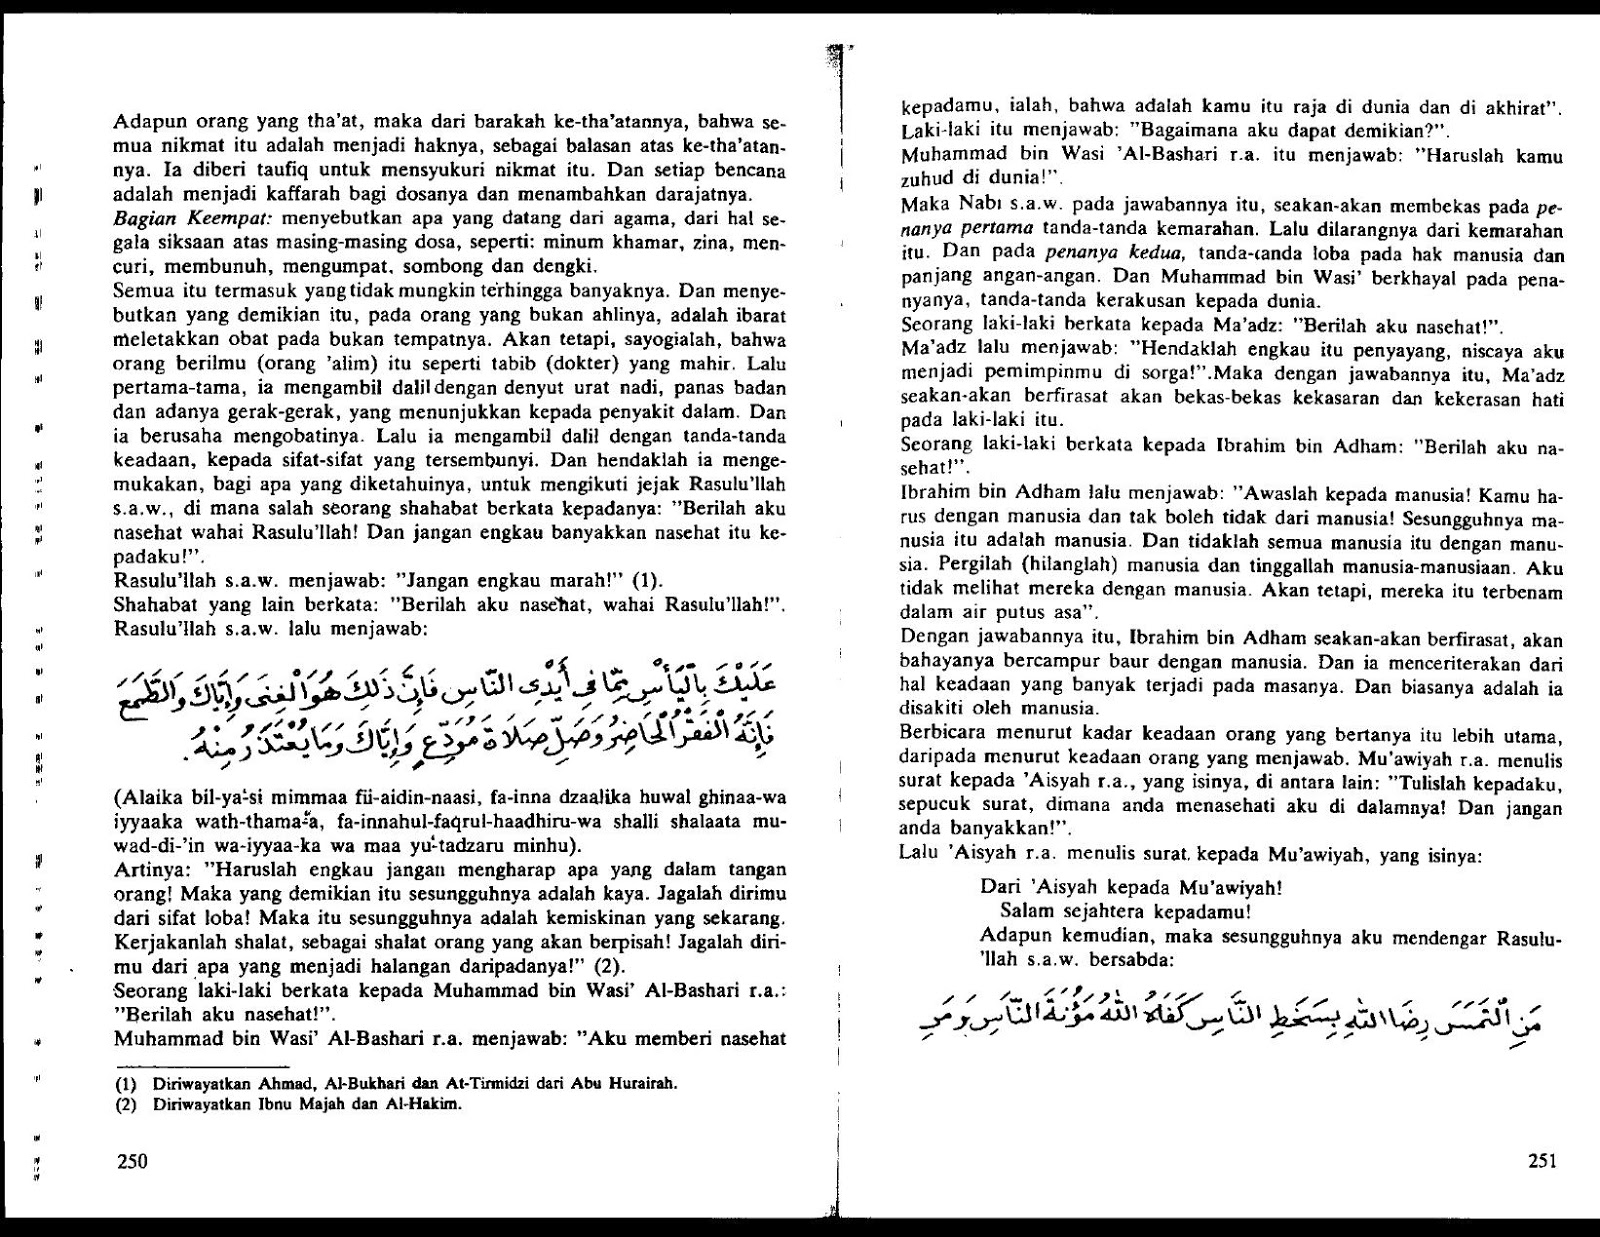 Adapun orang yang tha'at, maka dari barakah ke-tha'atannya, bahwa se-
mua nikmat itu adalah menjadi haknya, sebagai balasan atas ke-tha'atan-
nya. Ia diberi taufiq untuk mensyukuri nikmat itu. Dan setiap bencana
adalah menjadi kaffarah bagi dosanya dan menambahkan darajatnya.
Bagian Keempat: menyebutkan apa yang datang dari agama, dari hal se-
gala siksaan atas masing-masing dosa, seperti: minum khamar, zina, men-
curi, membunuh, mengumpat, sombong dan dengki.
Semua itu termasuk yang tidak mungkin terhingga banyaknya. Dan menye-
butkan yang demikian itu, pada orang yang bukan ahlinya, adalah ibarat
meletakkan obat pada bukan tempatnya. Akan tetapi, sayogialah, bahwa
orang berilmu (orang 'alim) itu seperti tabib (dokter) yang mahir. Lalu
pertama-tama, ia mengambil dalil dengan denyut urat nadi, panas badan
dan adanya gerak-gerak, yang menunjukkan kepada penyakit dalam. Dan
ia berusaha mengobatinya. Lalu ia mengambil dalil dengan tanda-tanda
keadaan, kepada sifat-sifat yang tersembunyi. Dan hendaklah ia menge-
mukakan, bagi apa yang diketahuinya, untuk mengikuti jejak Rasulu'llah
s.a.w., di mana salah seorang shahabat berkata kepadanya: "Berilah aku
nasehat wahai Rasulu'llah! Dan jangan engkau banyakkan nasehat itu ke-
padaku!".
Rasulu'llah s.a.w. menjawab: "Jangan engkau marah!" (1).
Shahabat yang lain berkata: "Berilah aku nasehat, wahai Rasulu'llah!".
Rasulu'llah s.a.w. lalu menjawab:
عَلَيْكَ بِالْيَأْسِ مِمَّا فِى أَيْدِى النَّاسِ فَإِنَّ ذَلِكَ هُوَ الْغِنَى وَإِيَّاكَ وَالطَّمَعَ
فَإِنَّهُ الْفَقْرُ الْحَاضِرُ وَصَلِّ صَلَاةَ مُوَدِّعٍ وَإِيَّاكَ وَمَا يُعْتَذَرُ مِنْهُ.
(Alaika bil-ya'-si mimmaa fii-aidin-naasi, fa-inna dzaalika huwal ghinaa-wa
iyyaaka wath-thama-'a, fa-innahul-faqrul-haadhiru-wa shalli shalaata mu-
wad-di-'in wa-iyyaa-ka wa maa yu'-tadzaru minhu).
Artinya: "Haruslah engkau jangan mengharap apa yang dalam tangan
orang! Maka yang demikian itu sesungguhnya adalah kaya. Jagalah dirimu
dari sifat loba! Maka itu sesungguhnya adalah kemiskinan yang sekarang.
Kerjakanlah shalat, sebagai shalat orang yang akan berpisah! Jagalah diri-
mu dari apa yang menjadi halangan daripadanya!" (2).
Seorang laki-laki berkata kepada Muhammad bin Wasi' Al-Bashari r.a.:
"Berilah aku nasehat!".
Muhammad bin Wasi' Al-Bashari r.a. menjawab: "Aku memberi nasehat
(1) Diriwayatkan Ahmad, Al-Bukhari dan At-Tirmidzi dari Abu Hurairah.
(2) Diriwayatkan Ibnu Majah dan Al-Hakim.
250
kepadamu, ialah, bahwa adalah kamu itu raja di dunia dan di akhirat".
Laki-laki itu menjawab: "Bagaimana aku dapat demikian?".
Muhammad bin Wasi 'Al-Bashari r.a. itu menjawab: "Haruslah kamu
zuhud di dunia!".
Maka Nabi s.a.w. pada jawabannya itu, seakan-akan membekas pada pe-
nanya pertama tanda-tanda kemarahan. Lalu dilarangnya dari kemarahan
itu. Dan pada penanya kedua, tanda-tanda loba pada hak manusia dan
panjang angan-angan. Dan Muhammad bin Wasi' berkhayal pada pena-
nyanya, tanda-tanda kerakusan kepada dunia.
Seorang laki-laki berkata kepada Ma'adz: "Berilah aku nasehat!".
Ma'adz lalu menjawab: "Hendaklah engkau itu penyayang, niscaya aku
menjadi pemimpinmu di sorga!".Maka dengan jawabannya itu, Ma'adz
seakan-akan berfirasat akan bekas-bekas kekasaran dan kekerasan hati
pada laki-laki itu.
Seorang laki-laki berkata kepada Ibrahim bin Adham: "Berilah aku na-
sehat!".
Ibrahim bin Adham lalu menjawab: "Awaslah kepada manusia! Kamu ha-
rus dengan manusia dan tak boleh tidak dari manusia! Sesungguhnya ma-
nusia itu adalah manusia. Dan tidaklah semua manusia itu dengan manu-
sia. Pergilah (hilanglah) manusia dan tinggallah manusia-manusiaan. Aku
tidak melihat mereka dengan manusia. Akan tetapi, mereka itu terbenam
dalam air putus asa".
Dengan jawabannya itu, Ibrahim bin Adham seakan-akan berfirasat, akan
bahayanya bercampur baur dengan manusia. Dan ia menceriterakan dari
hal keadaan yang banyak terjadi pada masanya. Dan biasanya adalah ia
disakiti oleh manusia.
Berbicara menurut kadar keadaan orang yang bertanya itu lebih utama,
daripada menurut keadaan orang yang menjawab. Mu'awiyah r.a. menulis
surat kepada 'Aisyah r.a., yang isinya, di antara lain: "Tulislah kepadaku,
sepucuk surat, dimana anda menasehati aku di dalamnya! Dan jangan
anda banyakkan!".
Lalu 'Aisyah r.a. menulis surat. kepada Mu'awiyah, yang isinya:
Dari 'Aisyah kepada Mu'awiyah!
Salam sejahtera kepadamu!
Adapun kemudian, maka sesungguhnya aku mendengar Rasulu-
'llah s.a.w. bersabda:
مَنِ الْتَمَسَ رِضَا اللهِ بِسَخَطِ النَّاسِ كَفَاهُ اللهُ مَؤُنَةَ النَّاسِ وَمَنِ
251